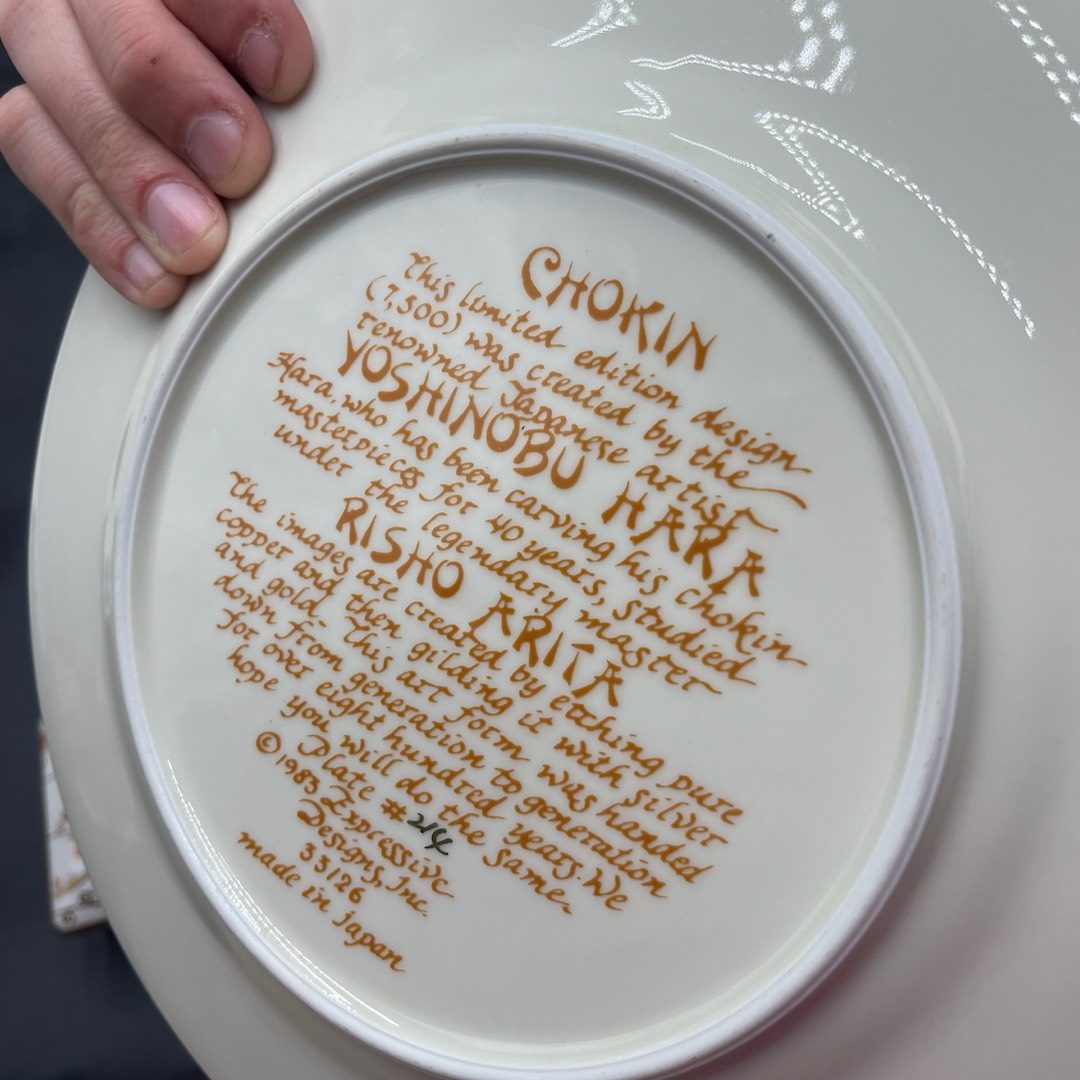 CHOKIN
This limited edition design
(7,500) was created by the
renowned Japanese artist
YOSHINOBU HARA
Hara, who has been carving his chokin
masterpieces for 40 years, studied
under the legendary master
RISHO ARITA
The images are created by etching pure
copper and then gilding it with silver
and gold. This art form was handed
down from generation to generation
for over eight hundred years. We
hope you will do the same.
Plate #214
©1983 Expressive
Designs, Inc.
33126
made in japan